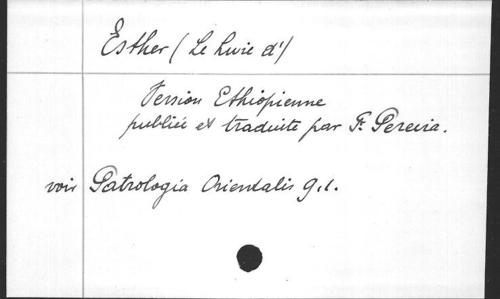 Esther (Le Livre d')
Version Ethiopienne
publiée et traduite par F. Pereira.
voir Patrologia Orientalis 9.1.